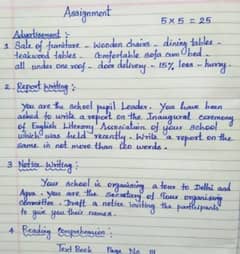 Assignment
5 x 5 = 25
Advertisement :
1. Sale of furniture - Wooden chairs - dining tables -
teakwood tables - Comfortable sofa cum bed -
all under one roof - door delivery - 15% less - hurry.
2. Report Writing :
You are the school pupil Leader. You have been
asked to write a report on the Inaugural ceremony
of English Literary Association of your school
which was held recently. Write a report on the
same in not more than words.
3 Notice Writing :
Your school is organising a tour to Delhi and
Agra. You are the Secretary of Tour organising
committee. Draft a notice inviting the participants
to give you their names.
4 Reading Comprehension :
Text Book Page No 111